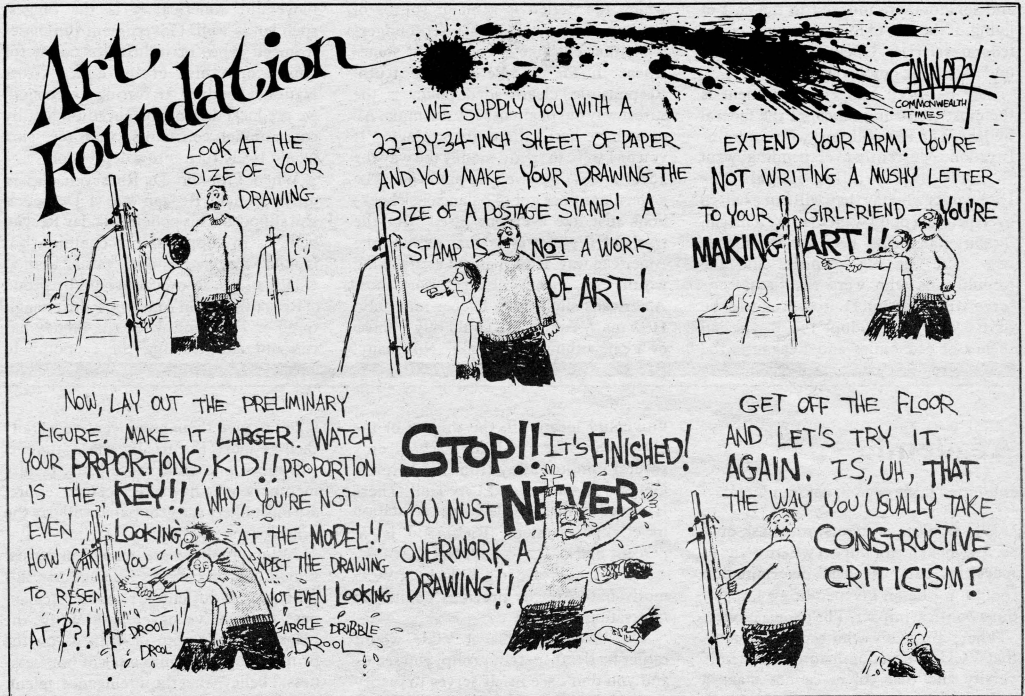 Art
Foundation
CANNADAY
COMMONWEALTH
TIMES
LOOK AT THE
SIZE OF YOUR
DRAWING.
WE SUPPLY YOU WITH A
22-BY-34-INCH SHEET OF PAPER
AND YOU MAKE YOUR DRAWING THE
SIZE OF A POSTAGE STAMP! A
STAMP IS NOT A WORK
OF ART!
EXTEND YOUR ARM! YOU'RE
NOT WRITING A MUSHY LETTER
TO YOUR GIRLFRIEND— YOU'RE
MAKING ART!!
NOW, LAY OUT THE PRELIMINARY
FIGURE. MAKE IT LARGER! WATCH
YOUR PROPORTIONS, KID!! PROPORTION
IS THE KEY!! WHY, YOU'RE NOT
EVEN LOOKING AT THE MODEL!!
HOW CAN YOU XPECT THE DRAWING
TO RESEM OT EVEN LOOKING
AT ??! DROOL GARGLE DRIBBLE
DROOL DROOL
STOP!! IT'S FINISHED!
YOU MUST NEVER
OVERWORK A
DRAWING!!
GET OFF THE FLOOR
AND LET'S TRY IT
AGAIN. IS, UH, THAT
THE WAY YOU USUALLY TAKE
CONSTRUCTIVE
CRITICISM?